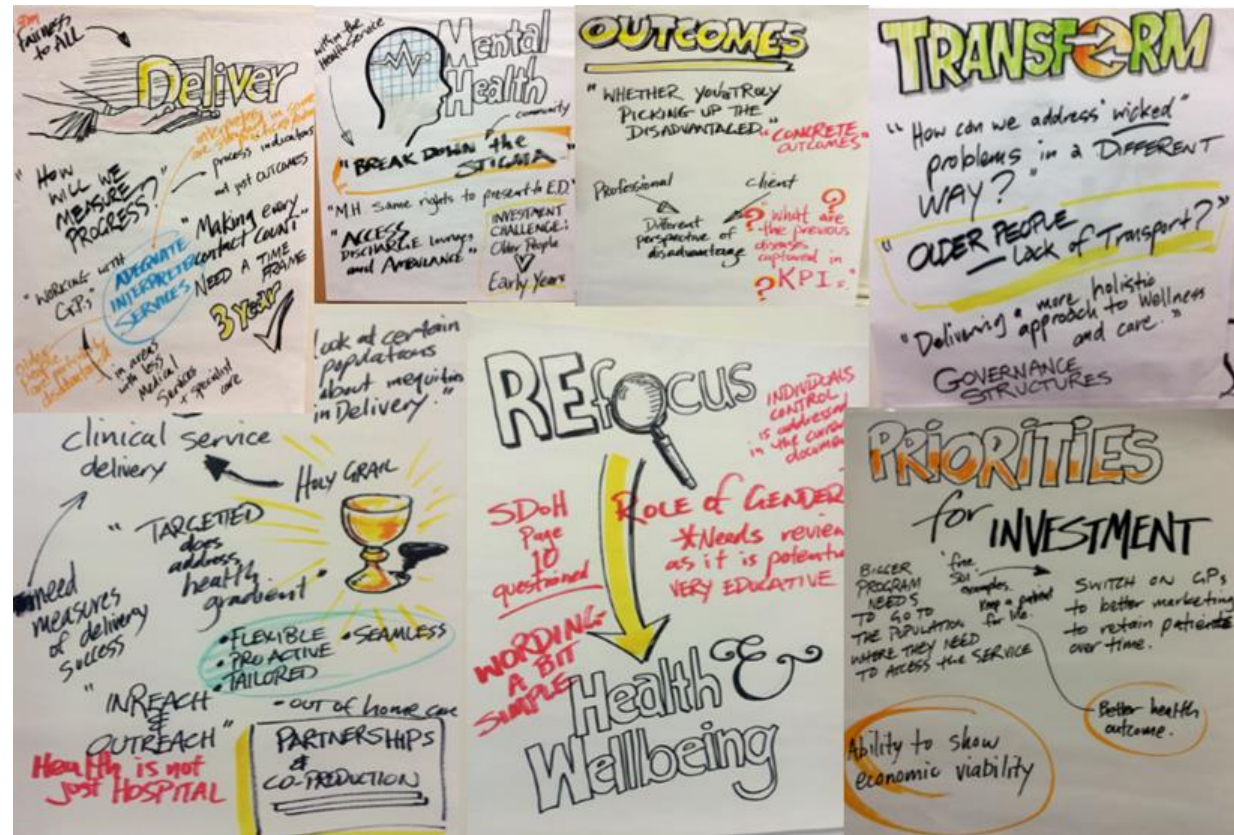 FAIRNESS
to ALL
Deliver
"HOW
WILL WE
MEASURE
PROGRESS?"
process indicators
not just OUTCOMES
"Making every
contact COUNT"
NEED A TIME
FRAME
3 Years
"WORKING WITH
G.P.s"
ADEQUATE
INTERPRETER
SERVICES
older
people
in areas
with less
Medical
Services
+ specialist
care
within the
Health Service
Mental
Health
community
"BREAK DOWN the
STIGMA"
"M.H. Same rights to present to E.D."
"ACCESS
DISCHARGE lounges
and AMBULANCE"
INVESTMENT
CHALLENGE:
Older People
Early Years
OUTCOMES
"WHETHER YOU'R TRULY
PICKING UP THE
DISADVANTAGED"
"CONCRETE
OUTCOMES"
Professional
client
Different
perspective of
disadvantage
? "what are ?
the previous
diseases
captured in
? KPI's."
TRANSFORM
"How can we address "wicked"
problems in a DIFFERENT
WAY?"
"OLDER PEOPLE
Lack of Transport?"
"Delivering a more holistic
approach to Wellness
and care."
GOVERNANCE
STRUCTURES
Look at certain
populations
about inequities
in Delivery."
clinical service
delivery
HOLY GRAIL
"TARGETED
does
address
health
gradient"
need
measures
of delivery
success
• FLEXIBLE • SEAMLESS
• PROACTIVE
• TAILORED
"INREACH
&
OUTREACH"
- OUT of home care
Health is not
just HOSPITAL
PARTNERSHIPS
&
CO-PRODUCTION
REfocus
INDIVIDUALS
CONTROL
is addressed
in the current
document
SDoH
Page
10
questioned
ROLE of GENDER
*Needs review
as it is
VERY EDUCATIVE
WORDING-
A BIT
SIMPLE
Health &
Wellbeing
PRIORITIES
for INVESTMENT
BIGGER
PROGRAM
NEEDS
TO GO TO
THE POPULATION
WHERE THEY NEED
TO ACCESS the SERVICE
examples.
Keep a patient
for life.
SWITCH ON GPs
to better marketing
to retain patients
over time.
Better health
outcome.
Ability to show
economic viability